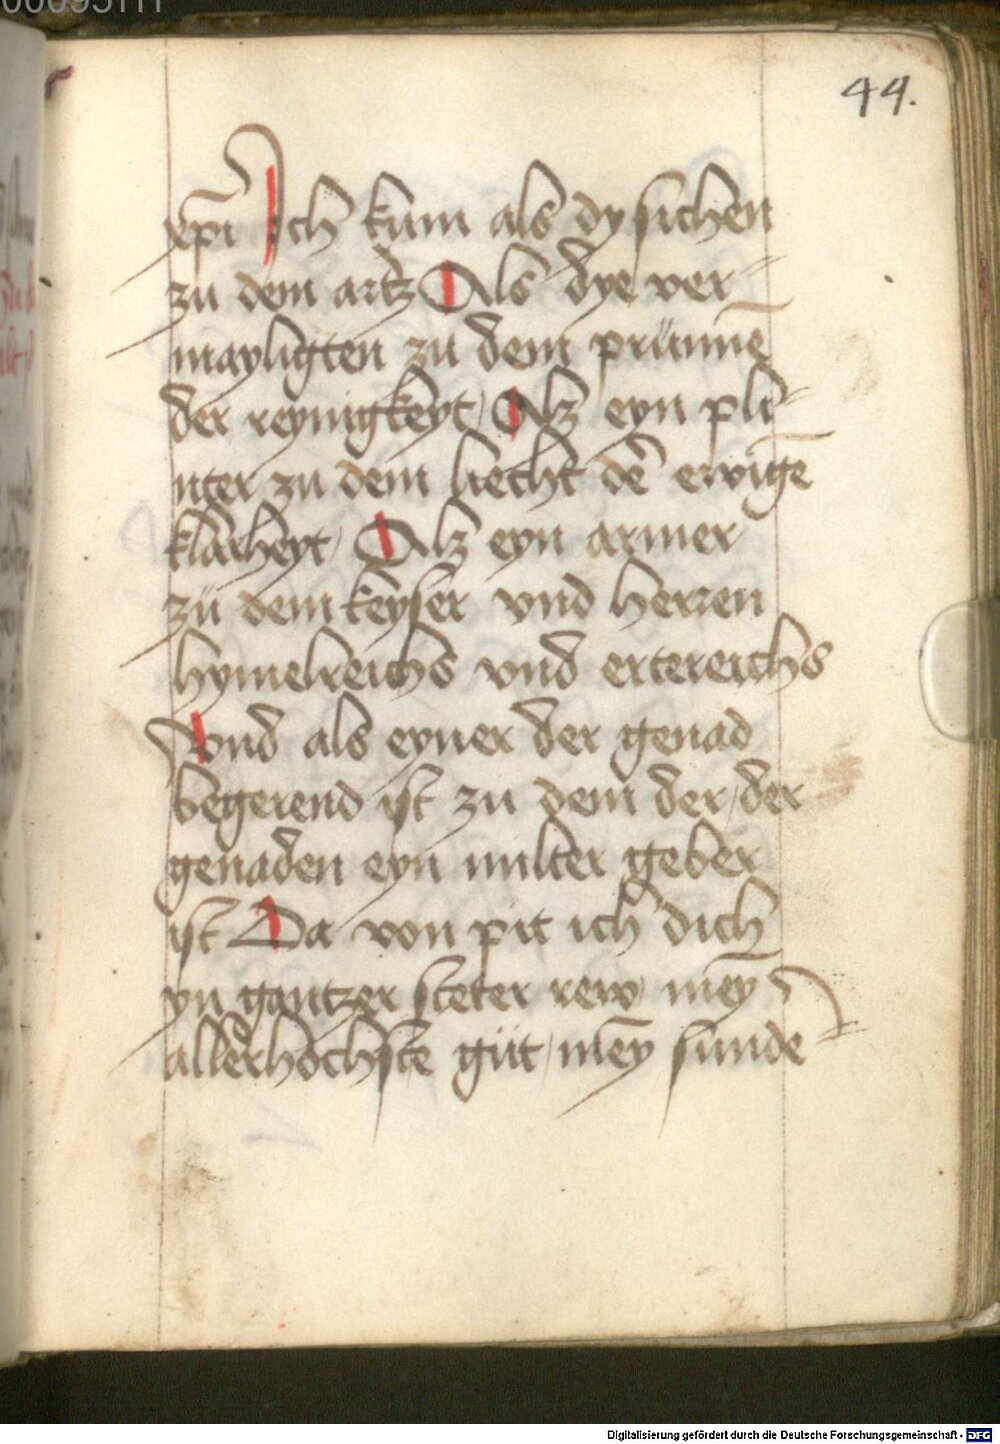 44.
xpī Ich kum als dy sichen
zu dem artz Als dye ver-
mayligten zu dem prünnē
der reynigkeyt / Alz eyn pli-
nter zu dem liecht dˀ ewigē
klarheyt / Alz eyn armer
zü dem keyser vnd herren
hymelreichs vnd ertereichs
Vnd als eyner der genad
begerend ist zu dem der / der
genaden eyn milter geber
ist Da von pit ich dich
yn gantzer steter rew mey̅
allerhochste güt / mey̅ sunde
Digitalisierung gefördert durch die Deutsche Forschungsgemeinschaft - DFG